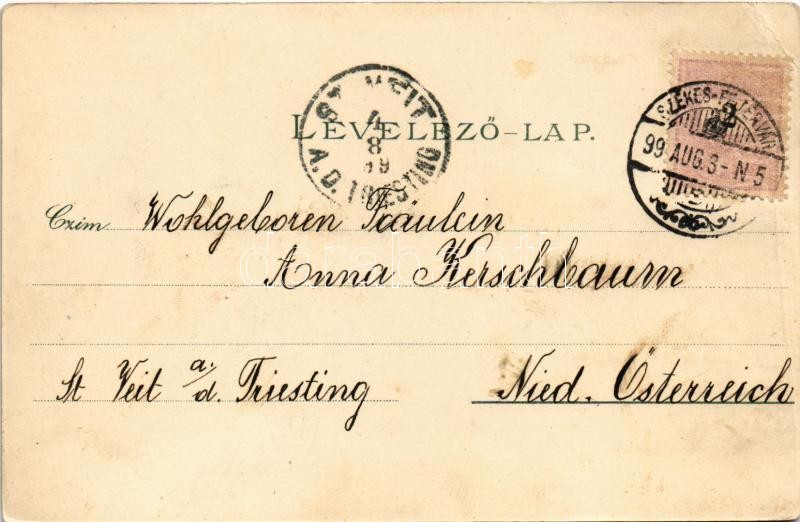 ST. VEIT
A.D. TRIESTING
4
8
99
LEVELEZŐ-LAP.
SZÉKES-FEJÉRVÁR
99 AUG. 3 - N 5
2
Czim Wohlgeboren Fräulein
Anna Kerschbaum
St Veit a./d. Triesting
Nied. Österreich